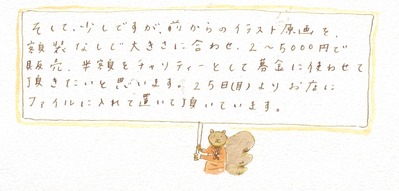 そして、少しですが、前からのイラスト原画を、
額装なしで大きさに合わせ、2〜5000円で
販売、半額をチャリティーとして募金に使わせて
頂きたいと思います。25日(月)よりお店に
ファイルに入れて置いて頂いています。